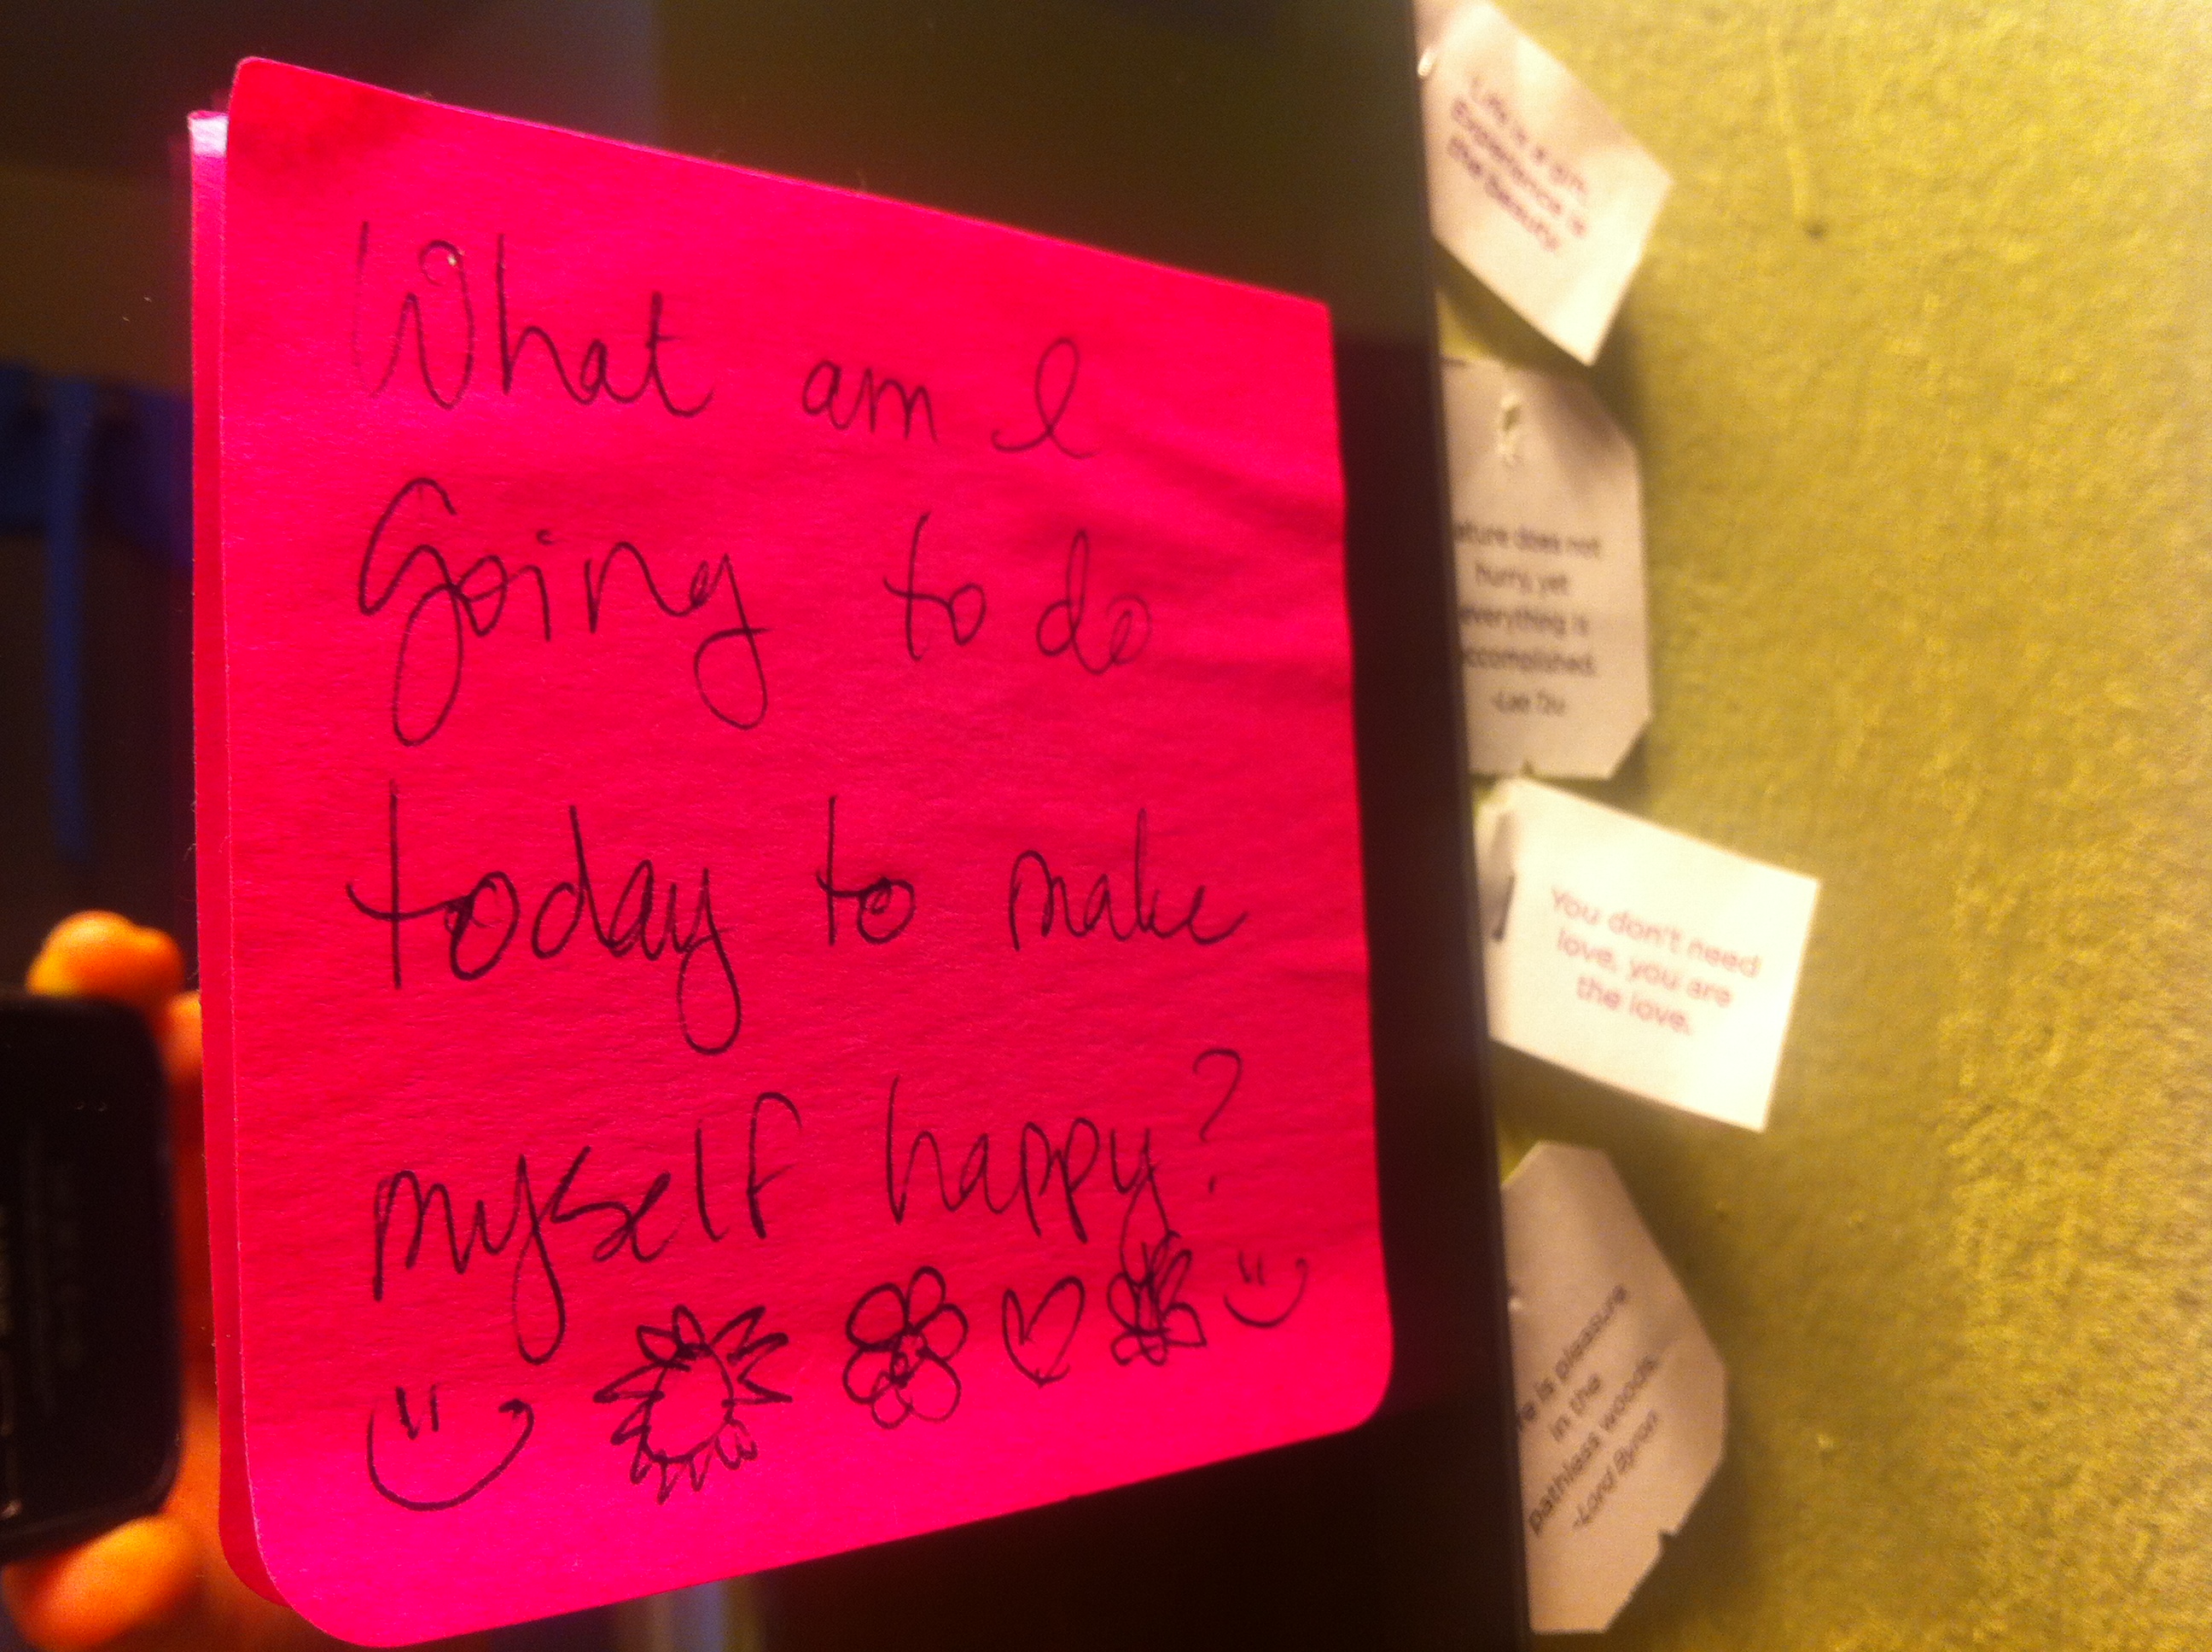 What am I
Going to do
today to make
myself happy?
Life is a gift.
Experience is
the beauty.
ature does not
hurry, yet
everything is
ccomplished.
-Lao Tzu
You don't need
love, you are
the love.
re is pleasure
in the
pathless woods.
-Lord Byron